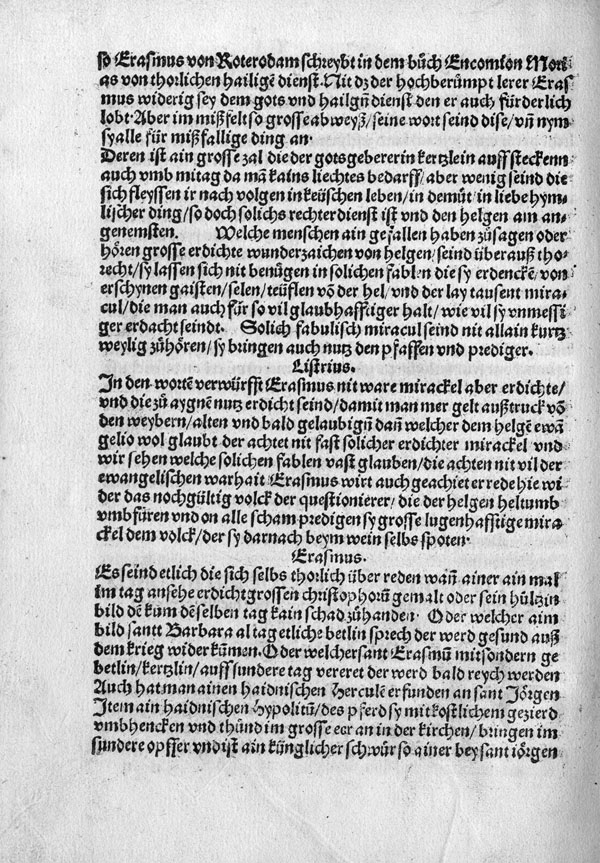 so Erasmus von Roterodam schreybt in dem bůch Encomion Mori-
as von thorlichen hailigē dienst. Nit dz der hochberümpt lerer Eras
mus widerig sey dem gots vnd hailgn̄ dienst den er auch fürderlich
lobt. Aber im mißfelt so grosse abweyß/ seine wort seind dise/ vn̄ nym
sy alle für mißfallige ding an.
Deren ist ain grosse zal die der gotsgebererin kertzlein auffsteckenn
auch vmb mitag da mā kains liechtes bedarff/ aber wenig seind die
sich fleyssen ir nach volgen in keüschen leben/ in demüt/ in liebe hym-
lischer ding/ so doch solichs rechter dienst ist vnd den helgen am an-
genemsten. Welche menschen ain gefallen haben zůsagen oder
hören grosse erdichte wunderzaichen von helgen/ seind überauß tho-
recht/ sy lassen sich nit benügen in solichen fablen die sy erdenckē/ von
erschynen gaisten/ selen/ teüflen vō der hel/ vnd der lay tausent mira-
cul/ die man auch für so vil glaubhafftiger halt/ wie vil sy vnmessi-
ger erdacht seindt. Solich fabulisch miracul seind nit allain kurtz
weylig zůhören/ sy bringen auch nutz den pfaffen vnd prediger.
Listrius.
In den wortē verwürfft Erasmus nit ware mirackel aber erdichte/
vnd die zů aygnē nutz erdicht seind/ damit man mer gelt außtruck vō
den weybern/ alten vnd bald gelaubign̄ dan̄ welcher dem helgē ewā
gelio wol glaubt der achtet nit fast solicher erdichter mirackel vnd
wir sehen welche solichen fablen vast glauben/ die achten nit vil der
ewangelischen warhait Erasmus wirt auch geachtet er rede hie wi
der das nochgültig volck der questionierer/ die der helgen heltumb
vmbfüren vnd on alle scham predigen sy grosse lugenhafftige mira
ckel dem volck/ der sy darnach beym wein selbs spoten.
Erasmus.
Es seind etlich die sich selbs thorlich über reden wan̄ ainer ain mal
im tag ansehe erdicht grossen christophorū gemalt oder sein hültzin
bild dē kum dē selben tag kain schad zůhanden. Oder welcher aim
bild santt Barbara al tag etliche betlin sprech der werd gesund auß
dem krieg wider kūmen. Oder welcher sant Erasmū mit sondern ge
betlin/ kertzlin/ auff sundere tag vereret der werd bald reych werden
Auch hat man ainen haidnischen Herculē erfunden an sant Jörgen
Item ain haidnischen Hypolitū/ des pferd sy mit kostlichem gezierd
vmbhencken vnd thůnd im grosse eer an in der kirchen/ bringen im
sundere opffer vnd ist ain künglicher schwůr so ainer bey sant jörgen